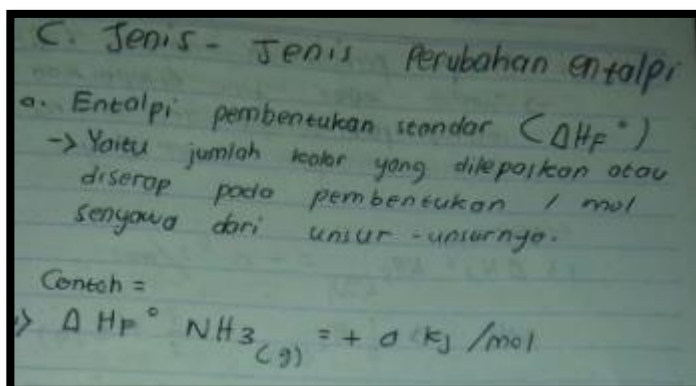 C. Jenis - Jenis Perubahan entalpi
a. Entalpi pembentukan standar (ΔHF°)
-> Yaitu jumlah kalor yang dilepaskan atau
diserap pada pembentukan 1 mol
senyawa dari unsur-unsurnya.
Contoh =
> ΔHF° NH3(g) = + a kj /mol